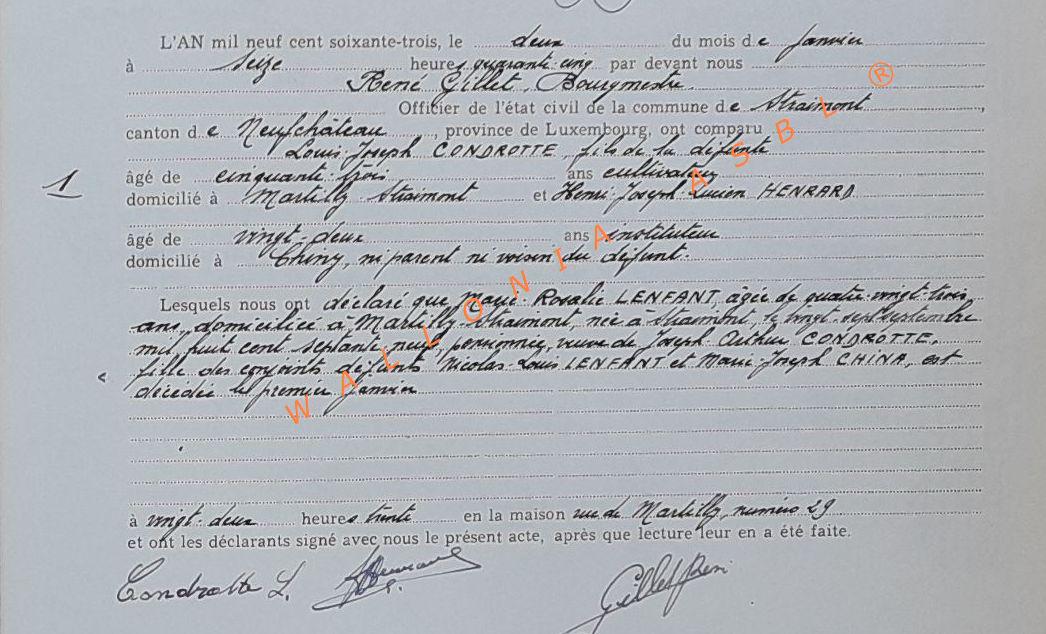 L'AN mil neuf cent soixante-trois, le deux du mois de janvier
à seize heures quarante cinq par devant nous
René Gillet, Bourgmestre.
Officier de l'état civil de la commune de Straimont,
canton de Neufchâteau, province de Luxembourg, ont comparu
Louis-Joseph CONDROTTE, fils de la défunte
1
âgé de cinquante-trois ans cultivateur
domicilié à Martilly-Straimont et Henri-Joseph-Lucien HENRARD
âgé de vingt-deux ans instituteur
domicilié à Chiny, ni parent ni voisin du défunt.
Lesquels nous ont déclaré que Marie-Rosalie LENFANT, âgée de quatre-vingt-trois
ans, domiciliée à Martilly-Straimont, née à Straimont, le vingt-sept septembre
mil huit cent septante neuf, pensionnée, veuve de Joseph Arthur CONDROTTE,
fille des conjoints défunts Nicolas-Louis LENFANT et Marie-Joseph CHINA, est
décédée le premier janvier
à vingt-deux heures trente en la maison rue de Martilly, numéro 29
et ont les déclarants signé avec nous le présent acte, après que lecture leur en a été faite.
Condrotte L. Henrard Gillet René
WALLONIA ASBL ®